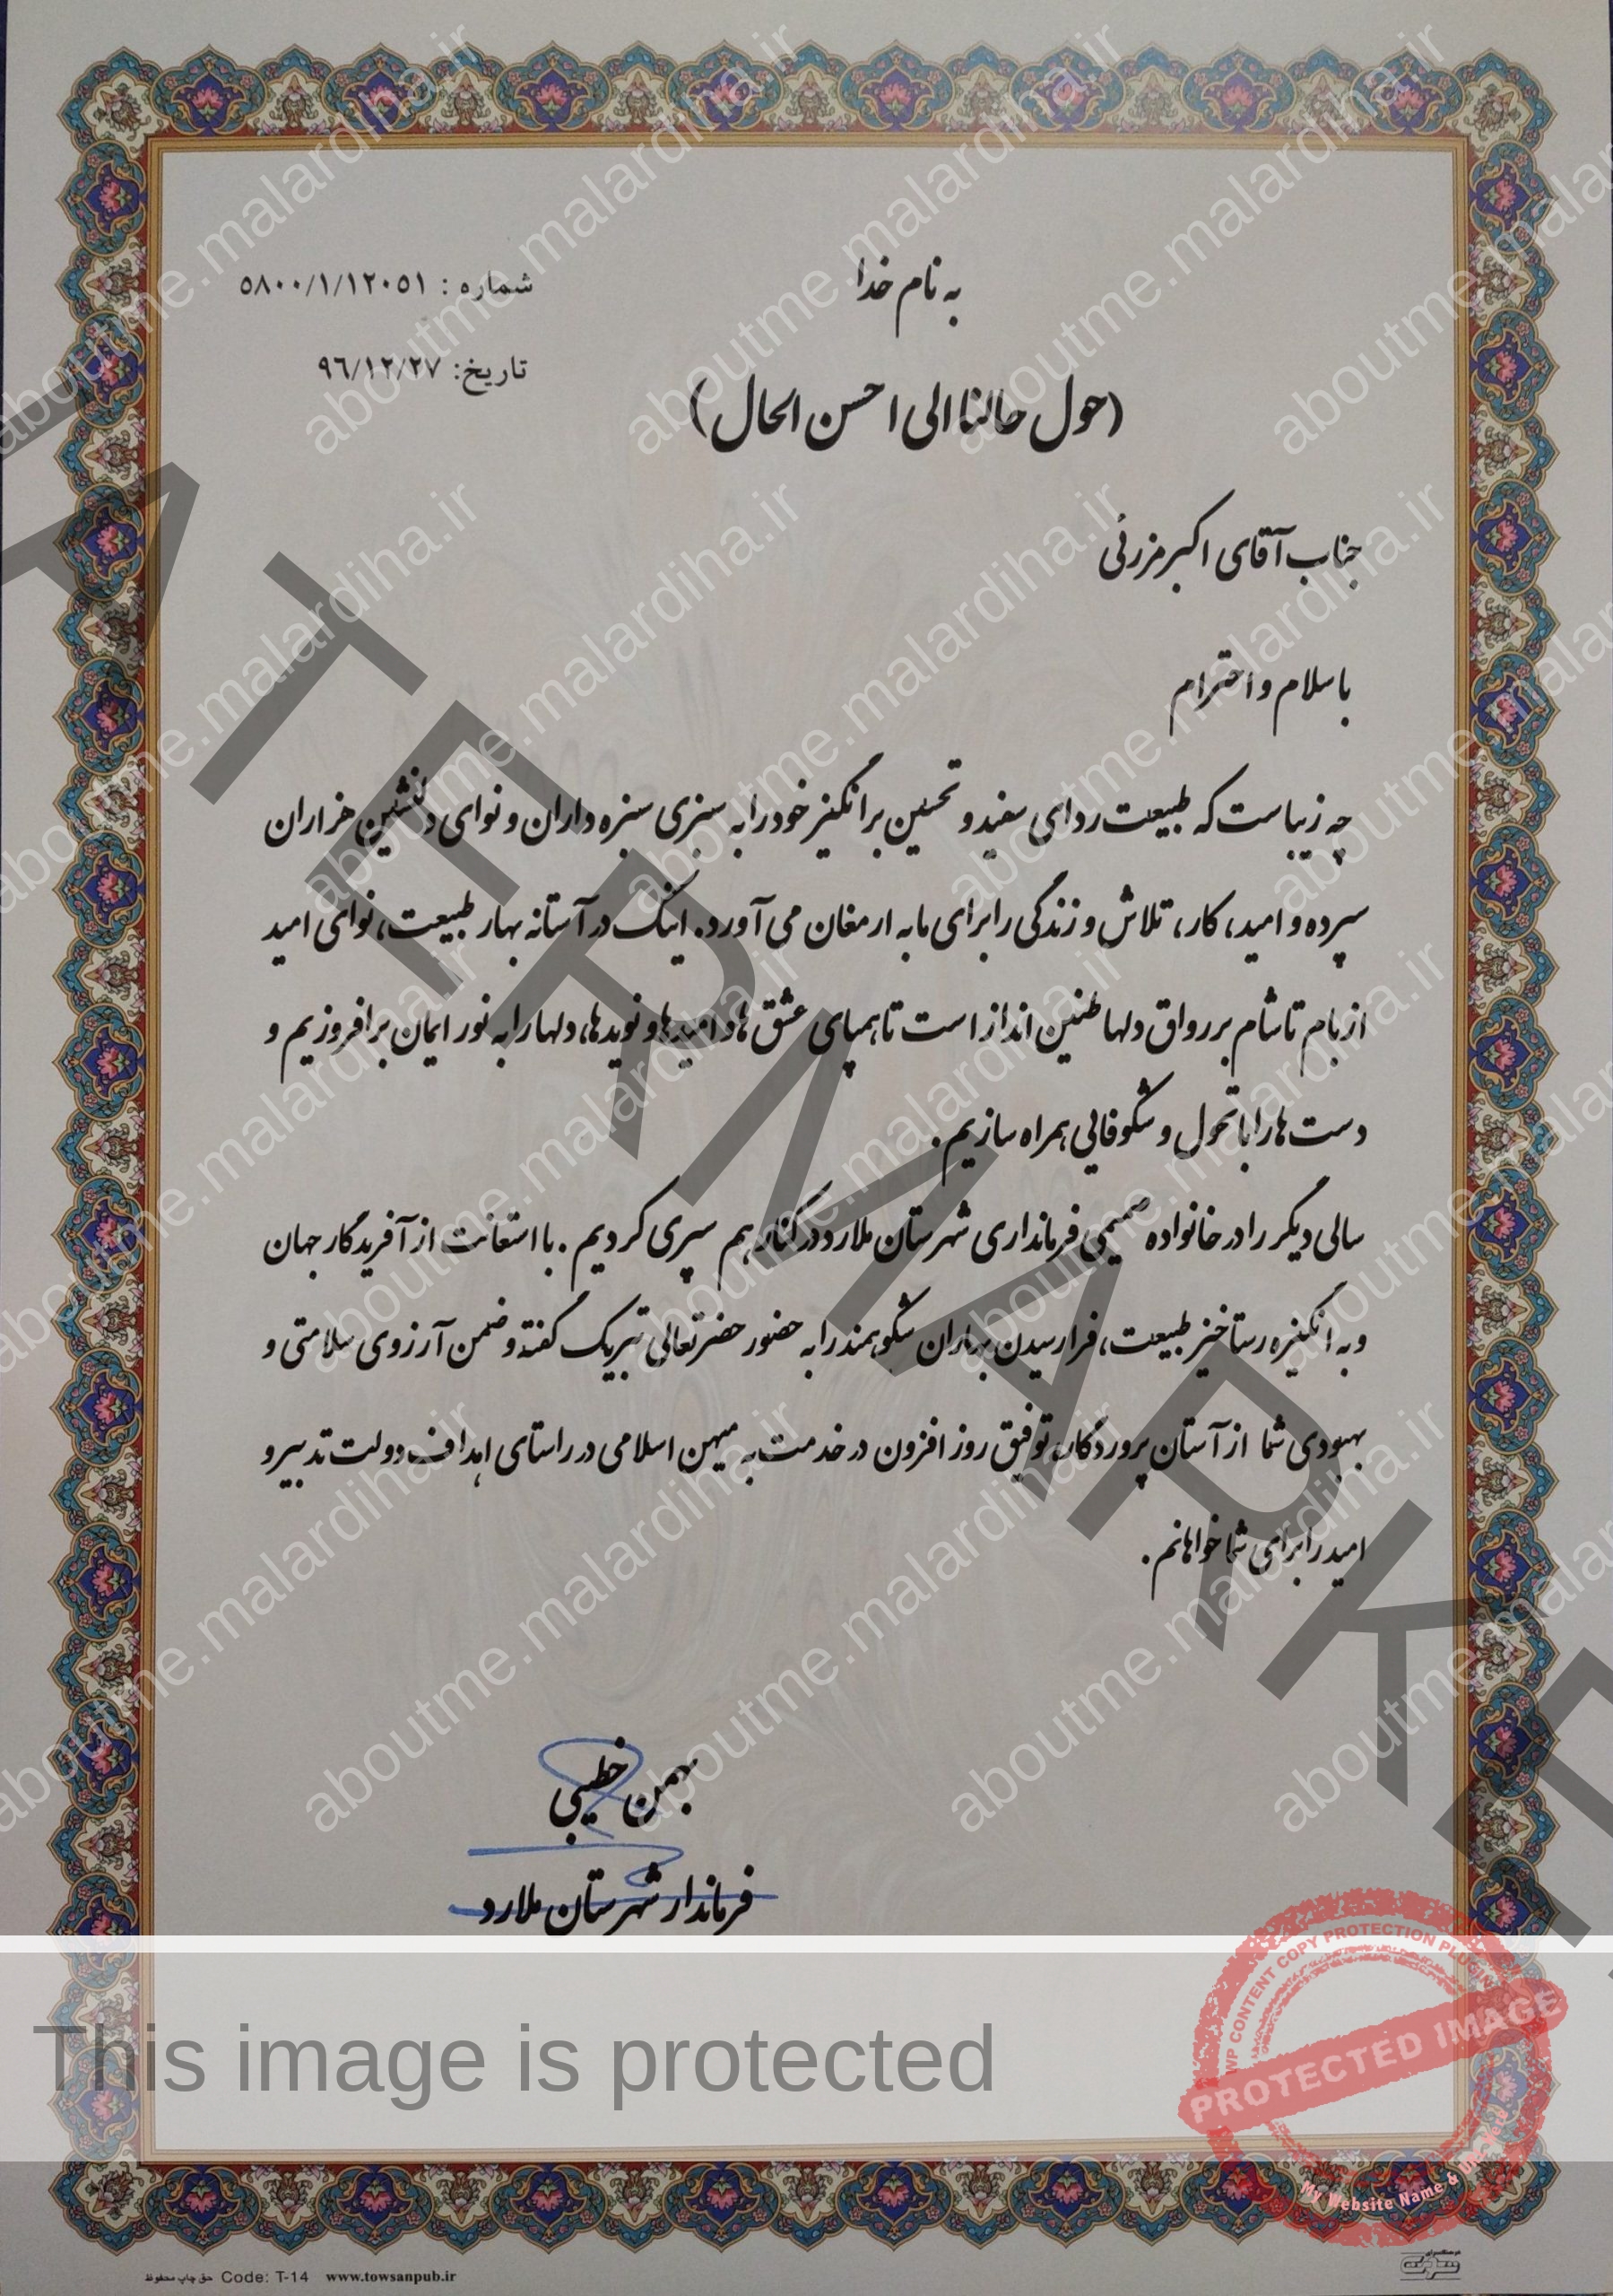 به نام خدا
شماره : ۵۸۰۰/۱/۱۲۰۵۱
تاریخ: ۹۶/۱۲/۲۷
(حول حالنا الی احسن الحال)
جناب آقای اکبر مزرئی
با سلام و احترام
چه زیباست که طبیعت ردای سفید و تحسین برانگیز خود را به سبزی سبزه داران و نوای دلنشین هزاران
سپرده و امید، کار، تلاش و زندگی را برای ما به ارمغان می آورد. اینک در آستانه بهار طبیعت، نوای امید
از بام تا شام بر رواق دلها طنین انداز است تا همپای عشق ها و امیدها و نویدها، دلها را به نور ایمان برافروزیم و
دست ها را با تحول و شکوفایی همراه سازیم.
سالی دیگر را در خانواده صمیمی فرمانداری شهرستان ملارد در کنار هم سپری کردیم. با استعانت از آفریدگار جهان
و به انگیزه رستاخیز طبیعت، فرا رسیدن بهاران شکوهمند را به حضور حضرتعالی تبریک گفته و ضمن آرزوی سلامتی و
بهبودی شما از آستان پروردگار، توفیق روز افزون در خدمت به میهن اسلامی در راستای اهداف دولت تدبیر و
امید را برای شما خواهانم.
بهمن خطیبی
فرماندار شهرستان ملارد
WATERMARKED
This image is protected
WP CONTENT COPY PROTECTION PLUGIN
PROTECTED IMAGE
My Website Name &
aboutme.malardiha.ir
حق چاپ محفوظ Code: T-14 www.towsanpub.ir